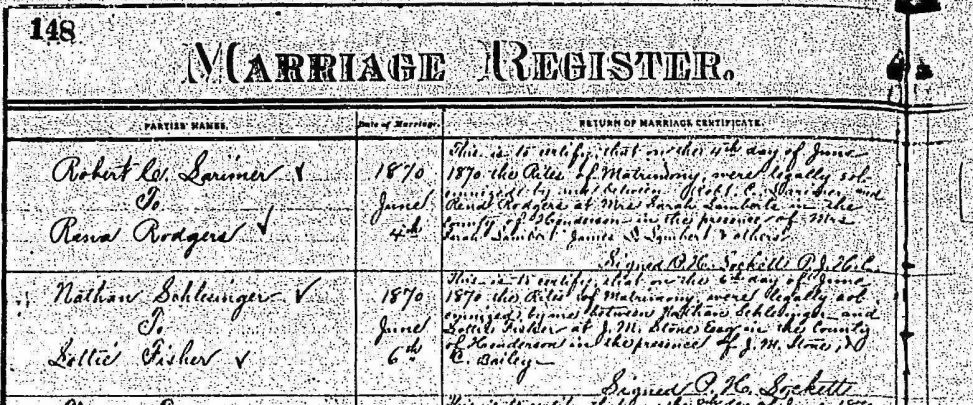 148
MARRIAGE REGISTER.
PARTIES' NAMES. Date of Marriage. RETURN OF MARRIAGE CERTIFICATE.
Robert C. Larimer
To
Rena Rodgers
1870
June
4th
This is to certify that on the 4th day of June
1870 the Rites of Matrimony were legally sol-
emnized by me between Robt. C. Larimer and
Rena Rodgers at Mrs Sarah Lamberts in the
County of Henderson in the presence of Mrs
Sarah Lambert James Lambert & others
Signed P. H. Lockett P.J.H.C.
Nathan Schlesinger
To
Lottie Fisher
1870
June
6th
This is to certify that on the 6th day of June
1870 the Rites of Matrimony were legally sol-
emnized by me between Nathan Schlesinger and
Lottie Fisher at J. M. Stone Esq in the County
of Henderson in the presence of J. M. Stone, &
C. Bailey
Signed P. H. Lockett